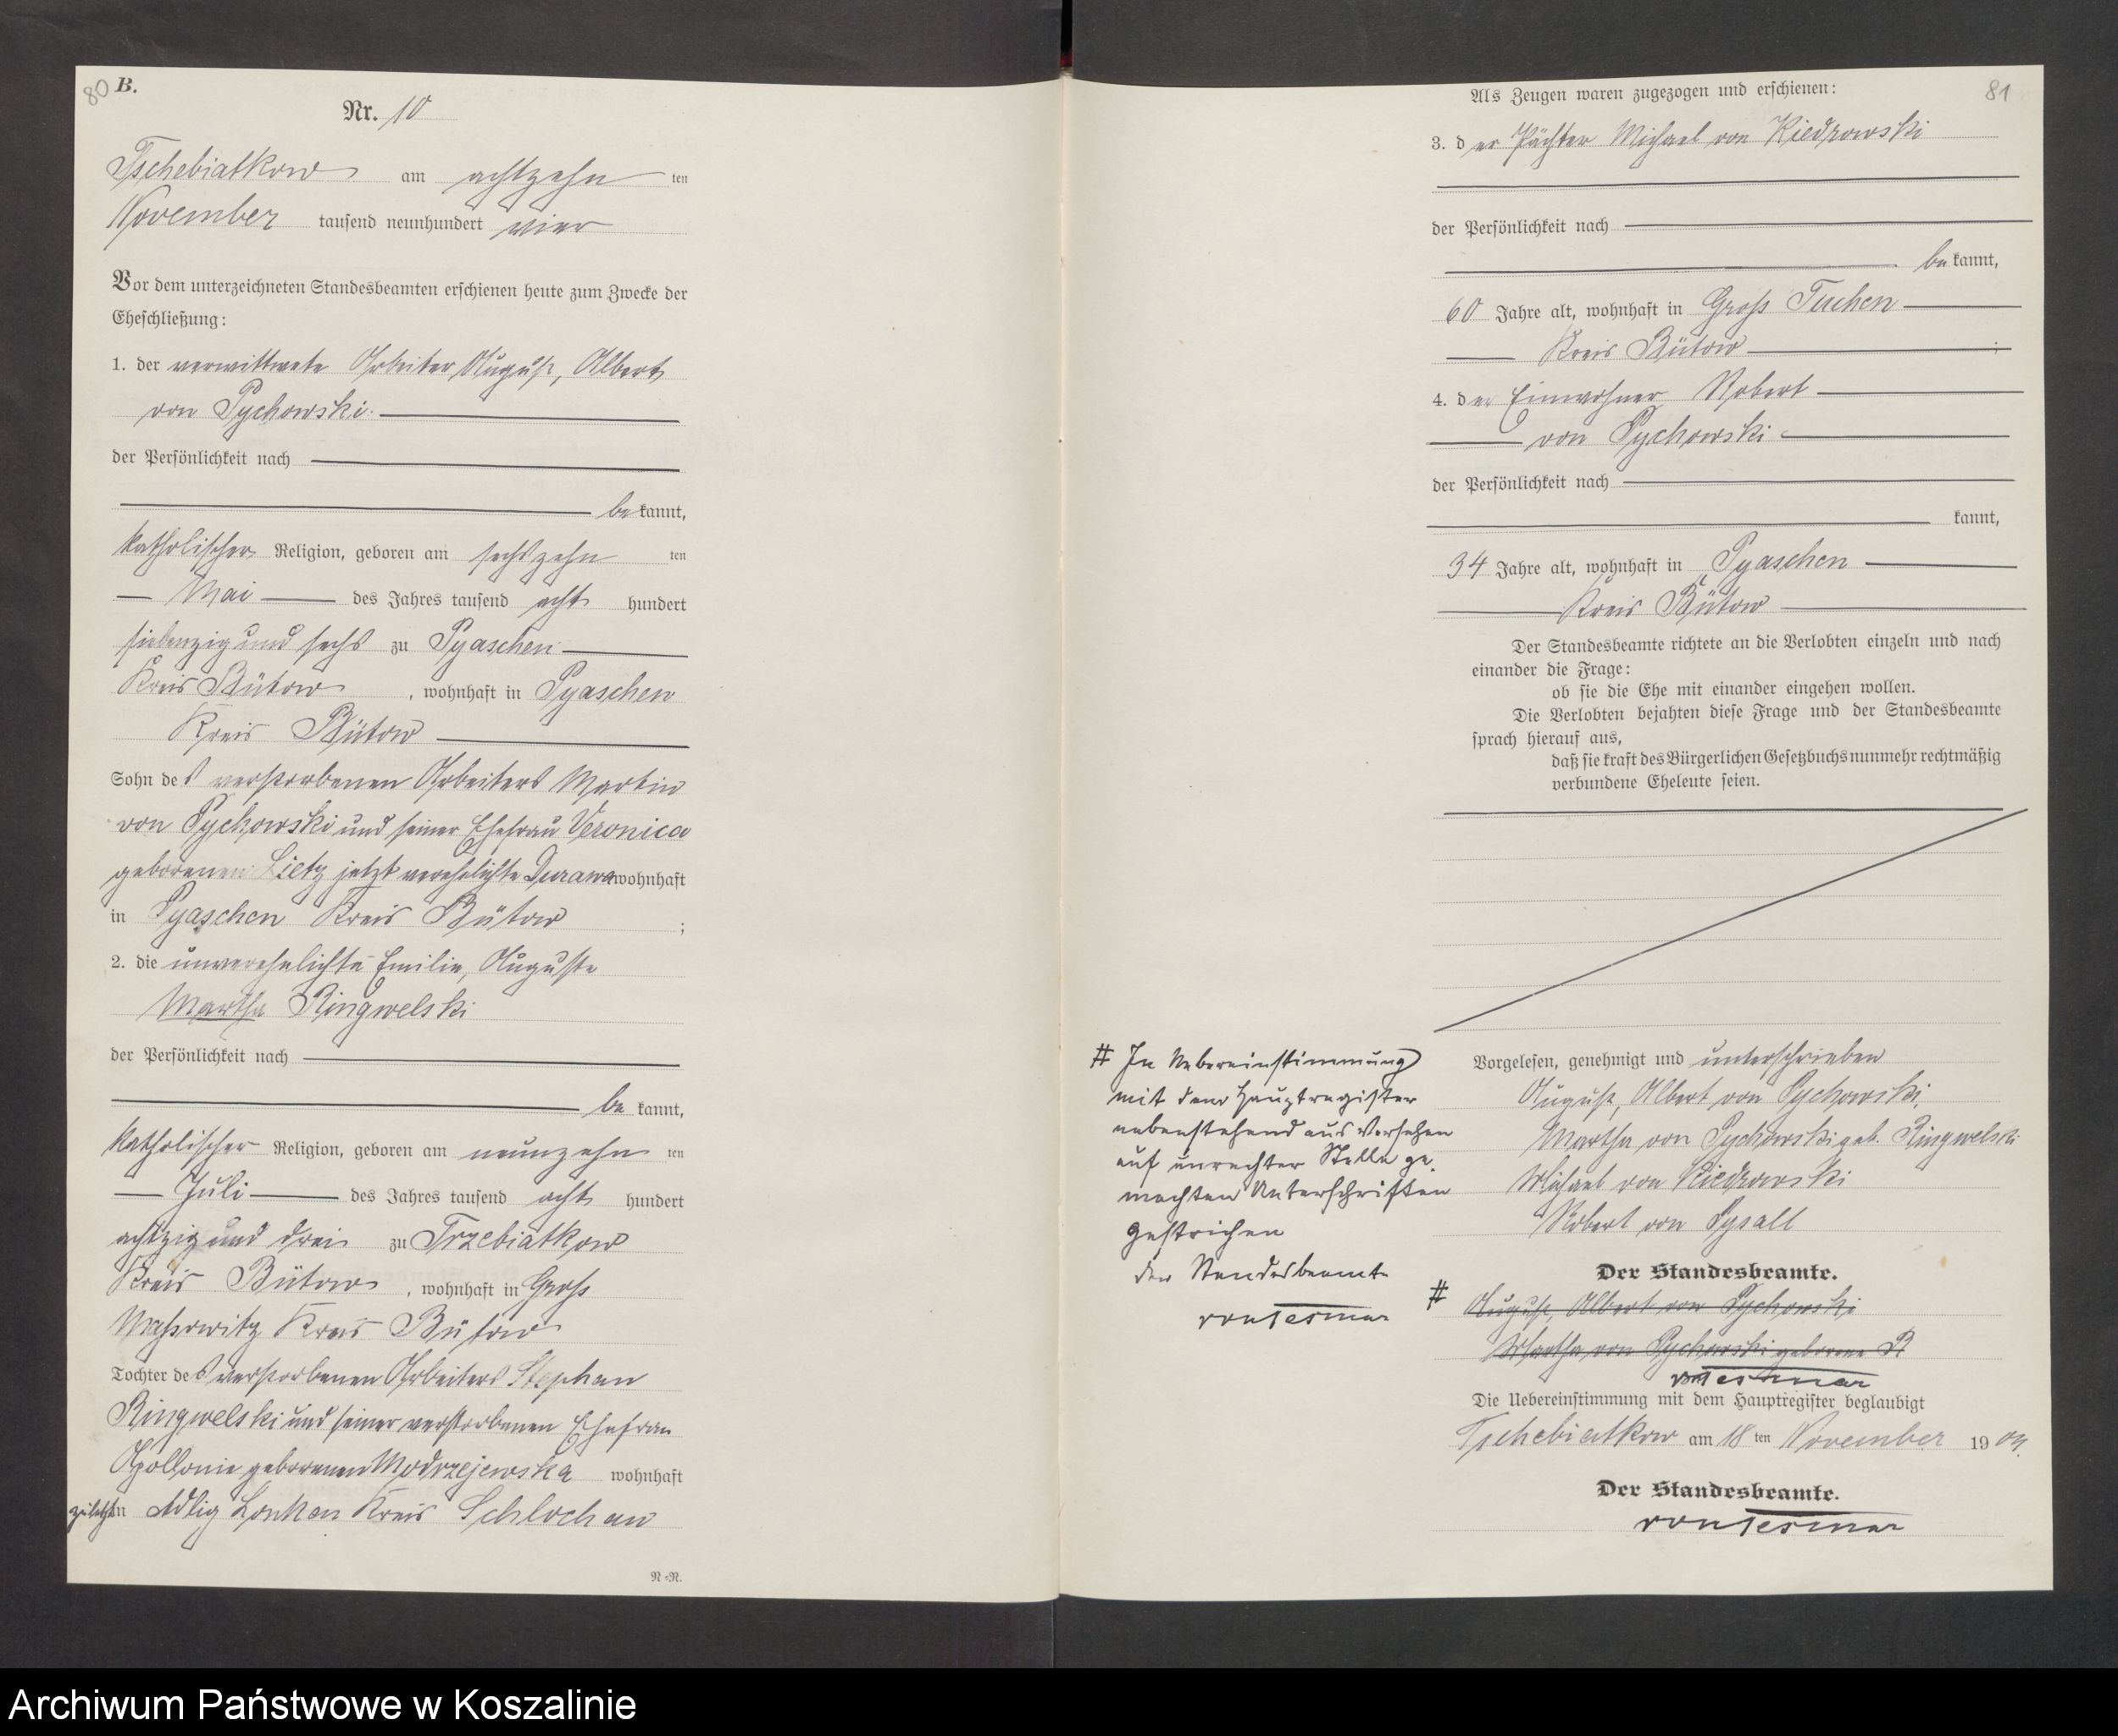 80
B.
Nr. 10
Tschebiatkow am achtzehn ten
November tausend neunhundert vier
Vor dem unterzeichneten Standesbeamten erschienen heute zum Zwecke der
Eheschließung:
1. der verwittwete Arbeiter August, Albert
von Pychowski
der Persönlichkeit nach
be kannt,
katholischer Religion, geboren am sechszehn ten
Mai des Jahres tausend acht hundert
siebenzig und sechs zu Pyaschen
Kreis Bütow, wohnhaft in Pyaschen
Kreis Bütow
Sohn des verstorbenen Arbeiters Martin
von Pychowski und seiner Ehefrau Veronica
geborenen Lietz jetzt verehelichte Durawa wohnhaft
in Pyaschen Kreis Bütow ;
2. die unverehelichte Emilie, Auguste
Martha Ringwelski
der Persönlichkeit nach
be kannt,
katholischer Religion, geboren am neunzehn ten
Juli des Jahres tausend acht hundert
achtzig und drei zu Trzebiatkow
Kreis Bütow, wohnhaft in Gross
Massowitz Kreis Bütow
Tochter des verstorbenen Arbeiters Stephan
Ringwelski und seiner verstorbenen Ehefrau
Apollonie geborenen Modrzejewska wohnhaft
zuletzt in Adlig Lonken Kreis Schlochau
N-R.
81
Als Zeugen waren zugezogen und erschienen:
3. der Pächter Michael von Kiedrowski
der Persönlichkeit nach
be kannt,
60 Jahre alt, wohnhaft in Gross Tuchen
Kreis Bütow ;
4. der Einwohner Robert
von Pychowski
der Persönlichkeit nach
kannt,
34 Jahre alt, wohnhaft in Pyaschen
Kreis Bütow
Der Standesbeamte richtete an die Verlobten einzeln und nach
einander die Frage:
ob sie die Ehe mit einander eingehen wollen.
Die Verlobten bejahten diese Frage und der Standesbeamte
sprach hierauf aus,
daß sie kraft des Bürgerlichen Gesetzbuchs nunmehr rechtmäßig
verbundene Eheleute seien.
Vorgelesen, genehmigt und unterschrieben
August, Albert von Pychowski.
Martha von Pychowski geb. Ringwelski
Michael von Kiedrowski
Robert von
Der Standesbeamte.
# August, Albert von Pychowski
Martha von Pychowski geborene R
von Tesmar
# In Uebereinstimmung
mit dem Hauptregister
nebenstehend aus Versehen
auf unrechter Stelle ge-
machten Unterschriften
gestrichen
der Standesbeamte
von Tesmar
Die Uebereinstimmung mit dem Hauptregister beglaubigt
Tschebiatkow am 18 ten November 1904.
Der Standesbeamte.
von Tesmar
Archiwum Państwowe w Koszalinie